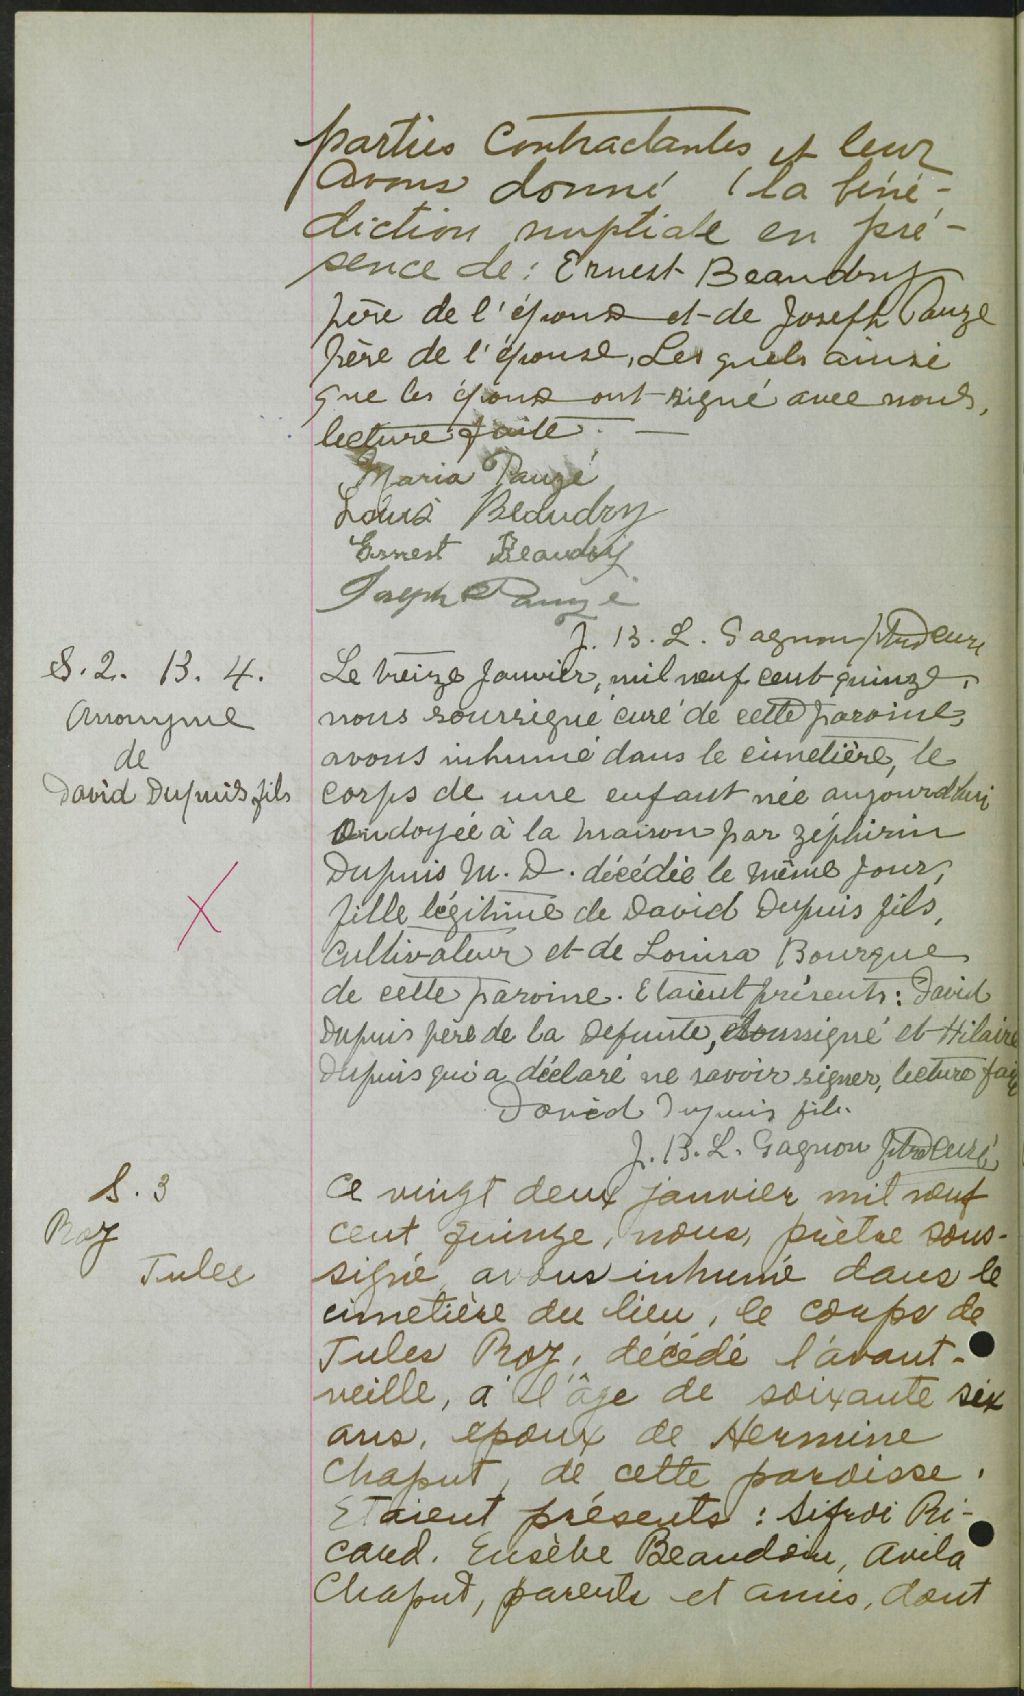 parties Contractantes et leur
Avons donné la béné-
diction nuptiale en pré-
sence de : Ernest Beaudry
père de l'époux et de Joseph Pauzé
père de l'épouse, Lesquels ainsi
que les époux ont signé avec nous,
lecture faite. —
Maria Pauzé
Louis Beaudry
Ernest Beaudry
Joseph Pauzé
J. B. L. Gagnon ptre curé
S. 2. B. 4.
Anonyme
de
David Dupuis fils
Le treize Janvier, mil neuf cent quinze,
nous soussigné curé de cette paroisse,
avons inhumé dans le cimetière, le
corps de une enfant née aujourd'hui
Ondoyée à la maison par Zéphirin
Dupuis M. D. décédée le même jour,
fille légitime de David Dupuis fils,
cultivateur et de Louisa Bourque
de cette paroisse. Etaient présents : David
Dupuis père de la Defunte, soussigné et Hilaire
Dupuis qui a déclaré ne savoir signer, lecture faite
David Dupuis fils.
J. B. L. Gagnon ptre curé
S. 3
Roy
Jules
Ce vingt deux janvier mil neuf
cent quinze, nous, prètre sous-
signé, avons inhumé dans le
cimetière du lieu, le corps de
Jules Roy, décédé l'avant-
veille, à l'âge de soixante six
ans, epoux de Hermine
Chaput, de cette paroisse.
Etaient présents : Sifroi Ri-
card. Eusèbe Beaudoin, Avila
Chaput, parents et amis, dont